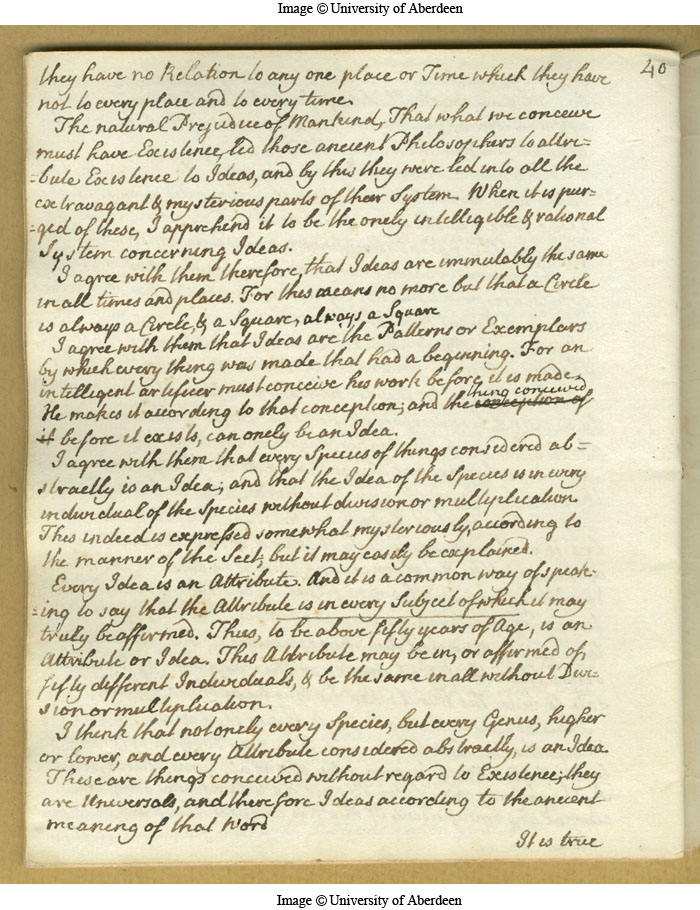 Image © University of Aberdeen
40
they have no Relation to any one place or Time which they have
not to every place and to every time.
The natural Prejudice of Mankind, That what we conceive
must have Existence, led those ancient Philosophers to attri=
=bute Existence to Ideas, and by this they were led into all the
extravagant & mysterious parts of their System. When it is pur=
=ged of these, I apprehend it to be the onely intelligible & rational
System concerning Ideas.
I agree with them therefore, that Ideas are immutably the same
in all times and places. For this means no more but that a Circle
is always a Circle, & a Square, always a Square
I agree with them that Ideas are the Patterns or Exemplars
by which every thing was made that had a beginning. For an
intelligent artificer must conceive his work before it is made,
thing conceived
He makes it according to that conception; and the conception of
it before it exists, can onely be an Idea.
I agree with them that every Species of things considered ab=
stractly is an Idea; and that the Idea of the Species is in every
individual of the Species without division or multiplication
This indeed is expressed somewhat mysteriously, according to
the manner of the Sect; but it may easily be explained.
Every Idea is an Attribute. And it is a common way of speak=
=ing to say that the Attribute is in every Subject of which it may
truly be affirmed. Thus, to be above fifty years of Age, is an
Attribute or Idea. This Attribute may be in, or affirmed of,
fifty different Individuals, & be the same in all without Divi=
sion or multiplication.
I think that not onely every Species, but every Genus, higher
or lower, and every Attribute considered abstractly, is an Idea
These are things conceived without regard to Existence; they
are Universals, and therefore Ideas according to the ancient
meaning of that Word
It is true
Image © University of Aberdeen